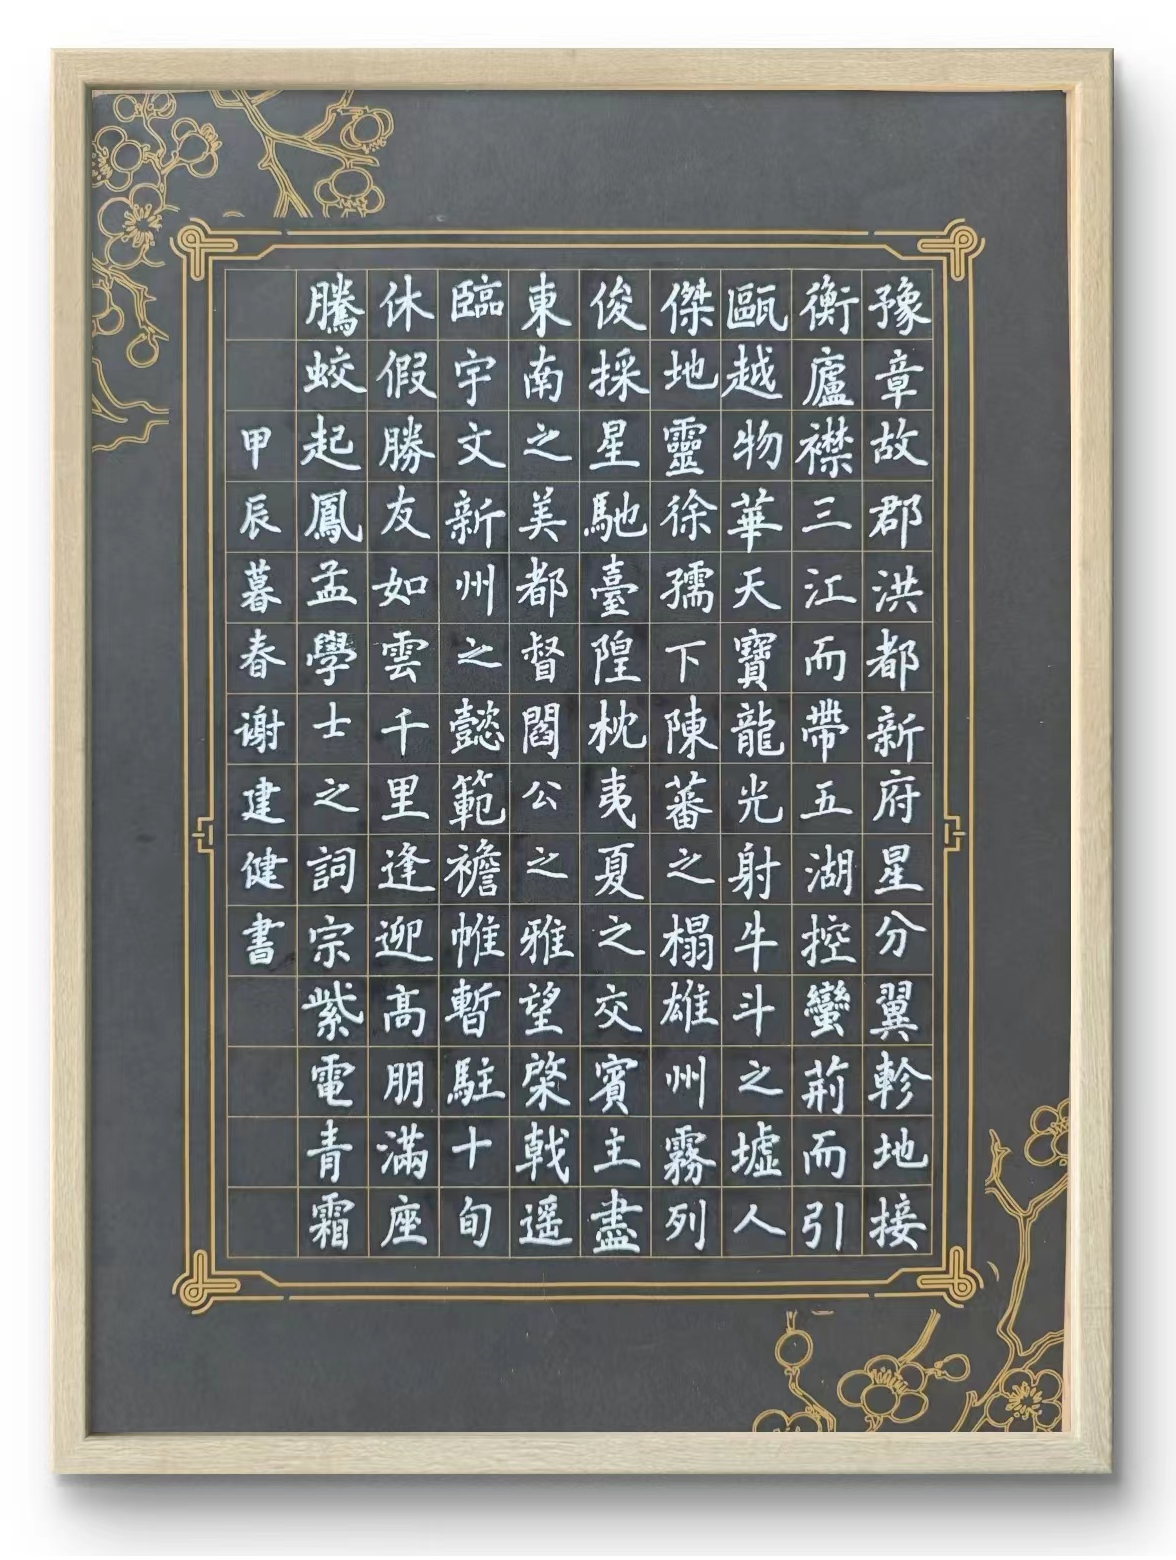 豫章故郡洪都新府星分翼軫地接
衡廬襟三江而帶五湖控蠻荊而引
甌越物華天寶龍光射牛斗之墟人
傑地靈徐孺下陳蕃之榻雄州霧列
俊採星馳臺隍枕夷夏之交賓主盡
東南之美都督閻公之雅望棨戟遥
臨宇文新州之懿範襜帷暫駐十旬
休假勝友如雲千里逢迎高朋滿座
騰蛟起鳳孟學士之詞宗紫電青霜
甲辰暮春谢建健書